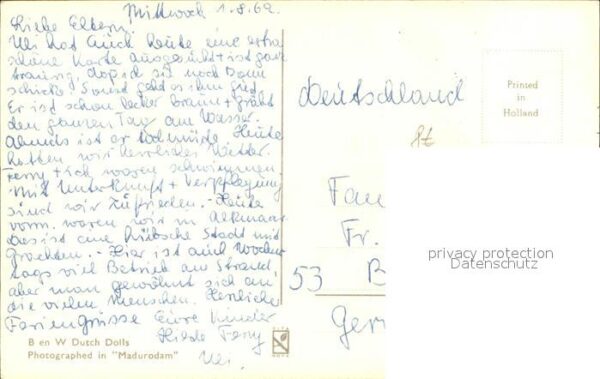 Mittwoch 1.8.62.
Liebe Eltern,
Uli hat Euch heute eine extra
schöne Karte ausgesucht + ist ganz
traurig, daß ich sie nach Bonn
schicke! Sonst geht es ihm gut.
Er ist schon lecker braun + gräbt
den ganzen Tag am Wasser.
Abends ist er todmüde. Heute
hatten wir herrliches Wetter.
Ferry + ich waren schwimmen.
Mit Unterkunft + Verpflegung
sind wir zufrieden. - Heute
vorm. waren wir in Alkmaar
das ist eine hübsche Stadt mit
Grachten. - Hier ist auch Wochen-
tags viel Betrieb am Strand,
aber man gewöhnt sich an
die vielen Menschen. Herzliche
Feriengrüsse Eure Kinder
Hilde Ferry
Uli.
B en W Dutch Dolls
Photographed in "Madurodam"
Deutschland
Printed
in
Holland
Fam
Fr.
53 B
Ger
privacy protection
Datenschutz